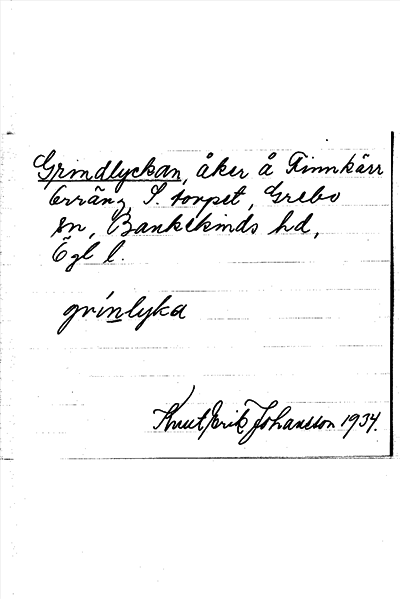 Grindlyckan, åker å Finnkärr
terräng, S. torpet, Grebo
sn, Bankekinds hd,
Ögl l.
grinlyka
Knut Erik Johansson 1934.